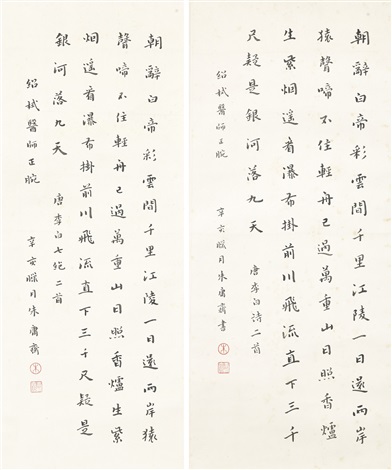 朝辭白帝彩雲間千里江陵一日還兩岸
猿聲啼不住輕舟已過萬重山日照香爐
生紫烟遙看瀑布掛前川飛流直下三千
尺疑是銀河落九天 唐李白詩二首
紹栻醫師正腕 辛亥臘月朱庸齋書
朝辭白帝彩雲間千里江陵一日還兩岸猿
聲啼不住輕舟已過萬重山日照香爐生紫
烟遙看瀑布掛前川飛流直下三千尺疑是
銀河落九天 唐李白七絕二首
紹栻醫師正腕 辛亥臘月朱庸齋